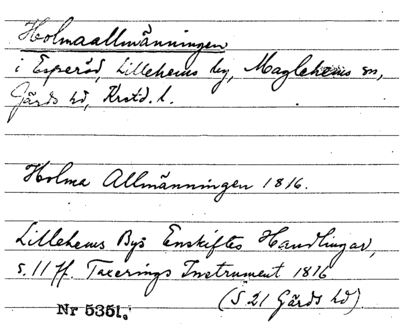 Holmaallmänningen
i Esperöd, Lillehems by, Maglehems sn,
Gärds hd, Krstd. l.
Holma Allmänningen 1816.
Lillehems Bys Enskiftes Handlingar,
s. 11 ff. Taxerings Instrument 1816
(S 21 Gärds hd)
Nr 5351.